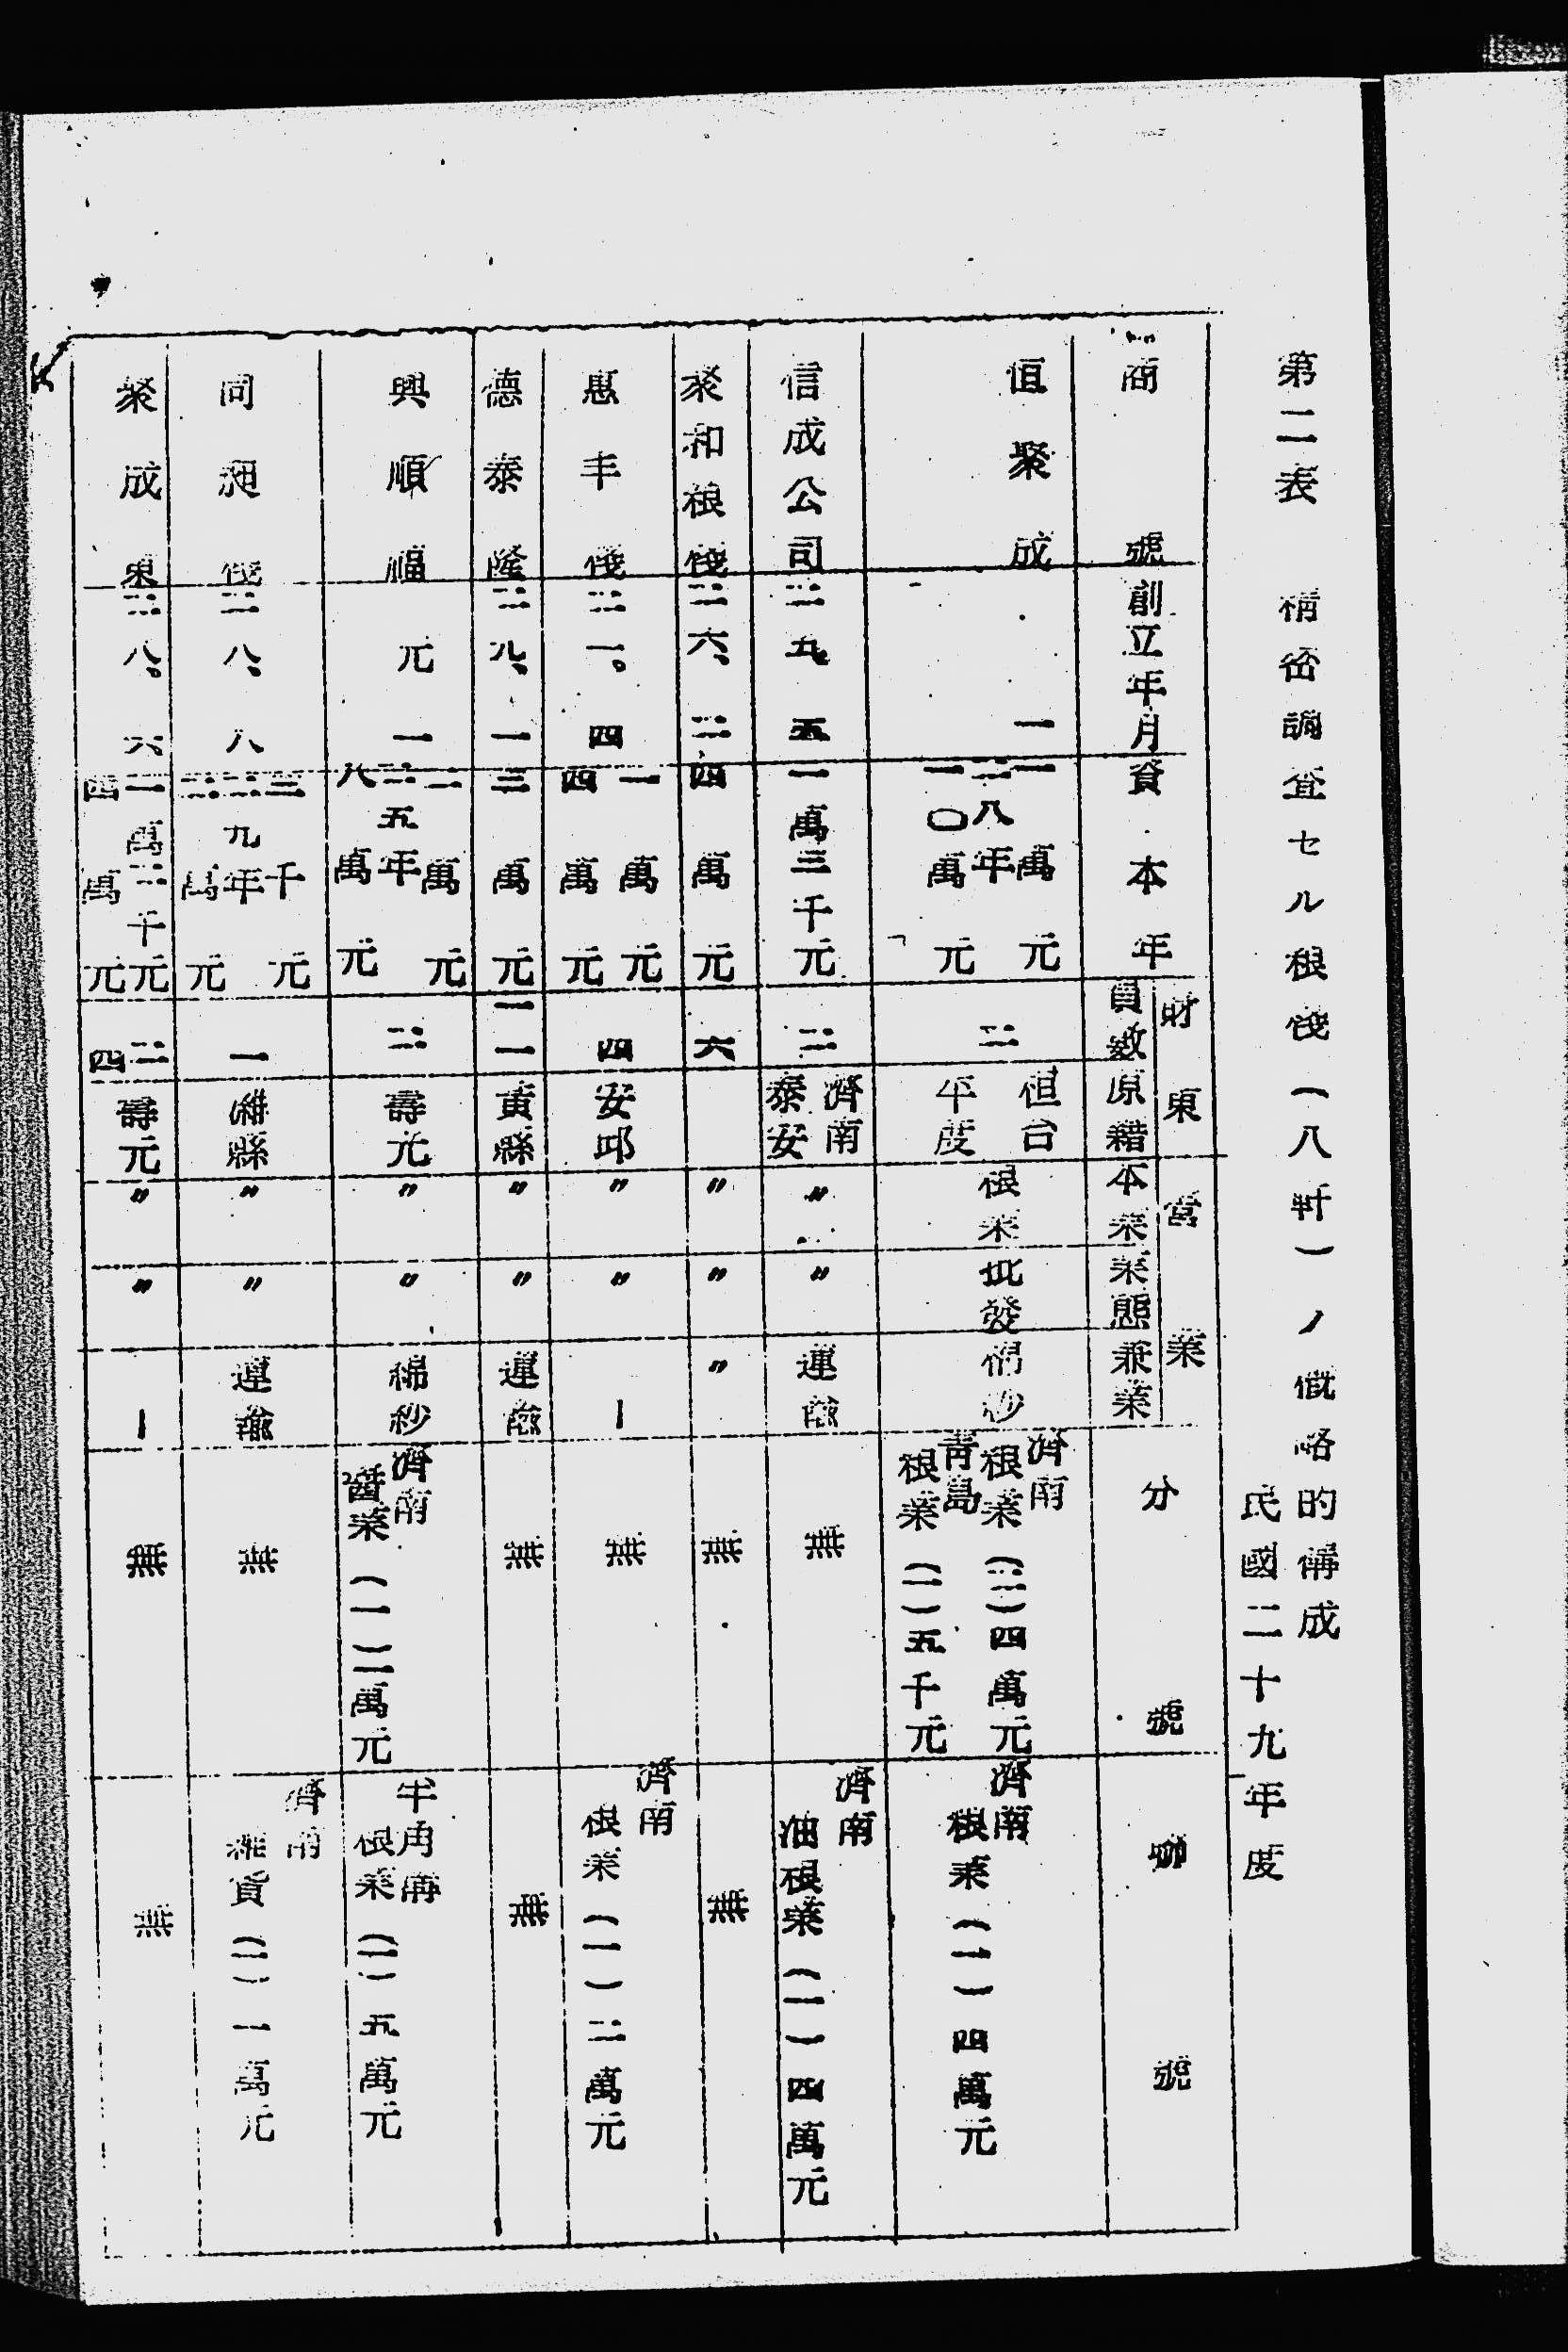 第二表 精密調査セル粮棧(八軒)ノ慨略的構成
民國二十九年度
商號 創立年月 資本年 財東 員数 原籍 営業 本業 業態 兼業 分號 聯號
恒聚成 一 一萬元 二八年 一〇萬元 二 恒台 平度 粮業 批發 綿紗 濟南 粮業(二)四萬元 青島 粮業(一)五千元 濟南 粮業(一)四萬元
信成公司 二九、五 一萬三千元 二 濟南 泰安 〃 〃 運輸 無 濟南 油粮業(一)四萬元
聚和粮棧 二六、二 四萬元 六 〃 〃 〃 無 無
惠丰棧 二一。四 一萬元 四萬元 四 安邱 〃 〃 ー 無 濟南 粮業(一)二萬元
德泰隆 二九、一 三萬元 一一 黄縣 〃 〃 運輸 無 無
興順福 元 一 二萬元 二五年 八萬元 二 壽光 〃 〃 綿紗 濟南 醤業(一)二萬元 羊角溝 粮業(一)五萬元
同昶棧 二八、八 三千元 二九年 二萬元 一 濰縣 〃 〃 運輸 無 濟南 雜貨(一)一萬元
聚成東 二八。六 一萬二千元 四萬元 二四 壽元 〃 〃 ー 無 無